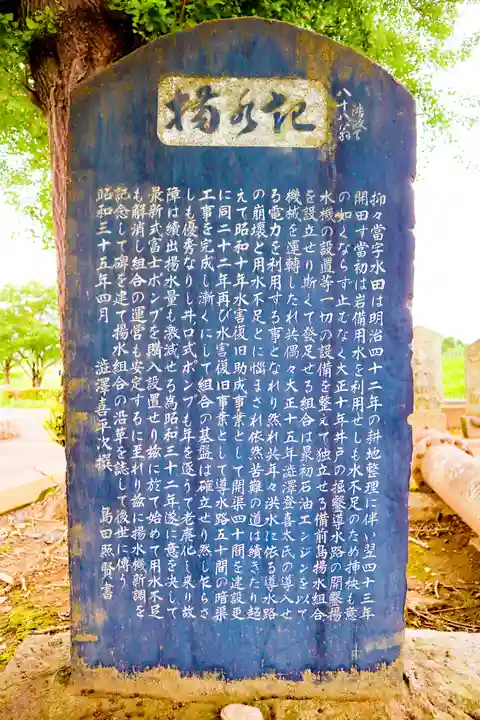 記水揚
八十八翁
抑々當字水田は明治四十二年の耕地整理に伴い翌四十三年
開田す當初は岩備用水を利用せしも水不足のため挿秧も意
の如くならず止むなく大正十年井戸の掘鑿導水路の開鑿揚
水機の設置等一切の設備を整えて独立せる備前島揚水組合
を設立せり斯くて發足せる組合は最初石油エンジンを以て
機械を運轉したれ共偶々大正十五年澁澤登喜太氏の導入せ
る電力を利用する事となれり然れ共年々洪水に依る導水路
の崩壊と用水不足とに悩まされ依然苦難の道は續きたり超
えて昭和十年水害復旧助成事業として開渠四十間を建設更
に同二十二年再び水害復旧事業として導水路五十間の暗渠
工事を完成し漸くにして組合の基盤は確立せり然し乍らさ
しも優秀なりし井口式ポンプも年を逐うて老廃化し来り故
障は續出揚水量も激減せる為昭和三十二年遂に意を決して
最新式富士ポンプを購入設置せり茲に於て始めて用水不足
も解消し組合の運営も安定するに至れり茲に揚水機新調を
記念して碑を建て揚水組合の沿革を誌して後世に傳う
昭和三十五年四月 澁澤喜平次撰 島田照賢書